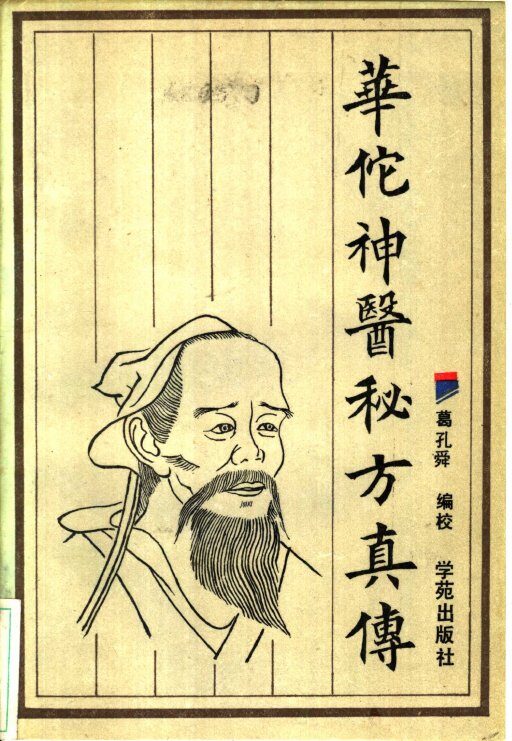 華佗神醫秘方真傳
葛孔舜 编校 学苑出版社